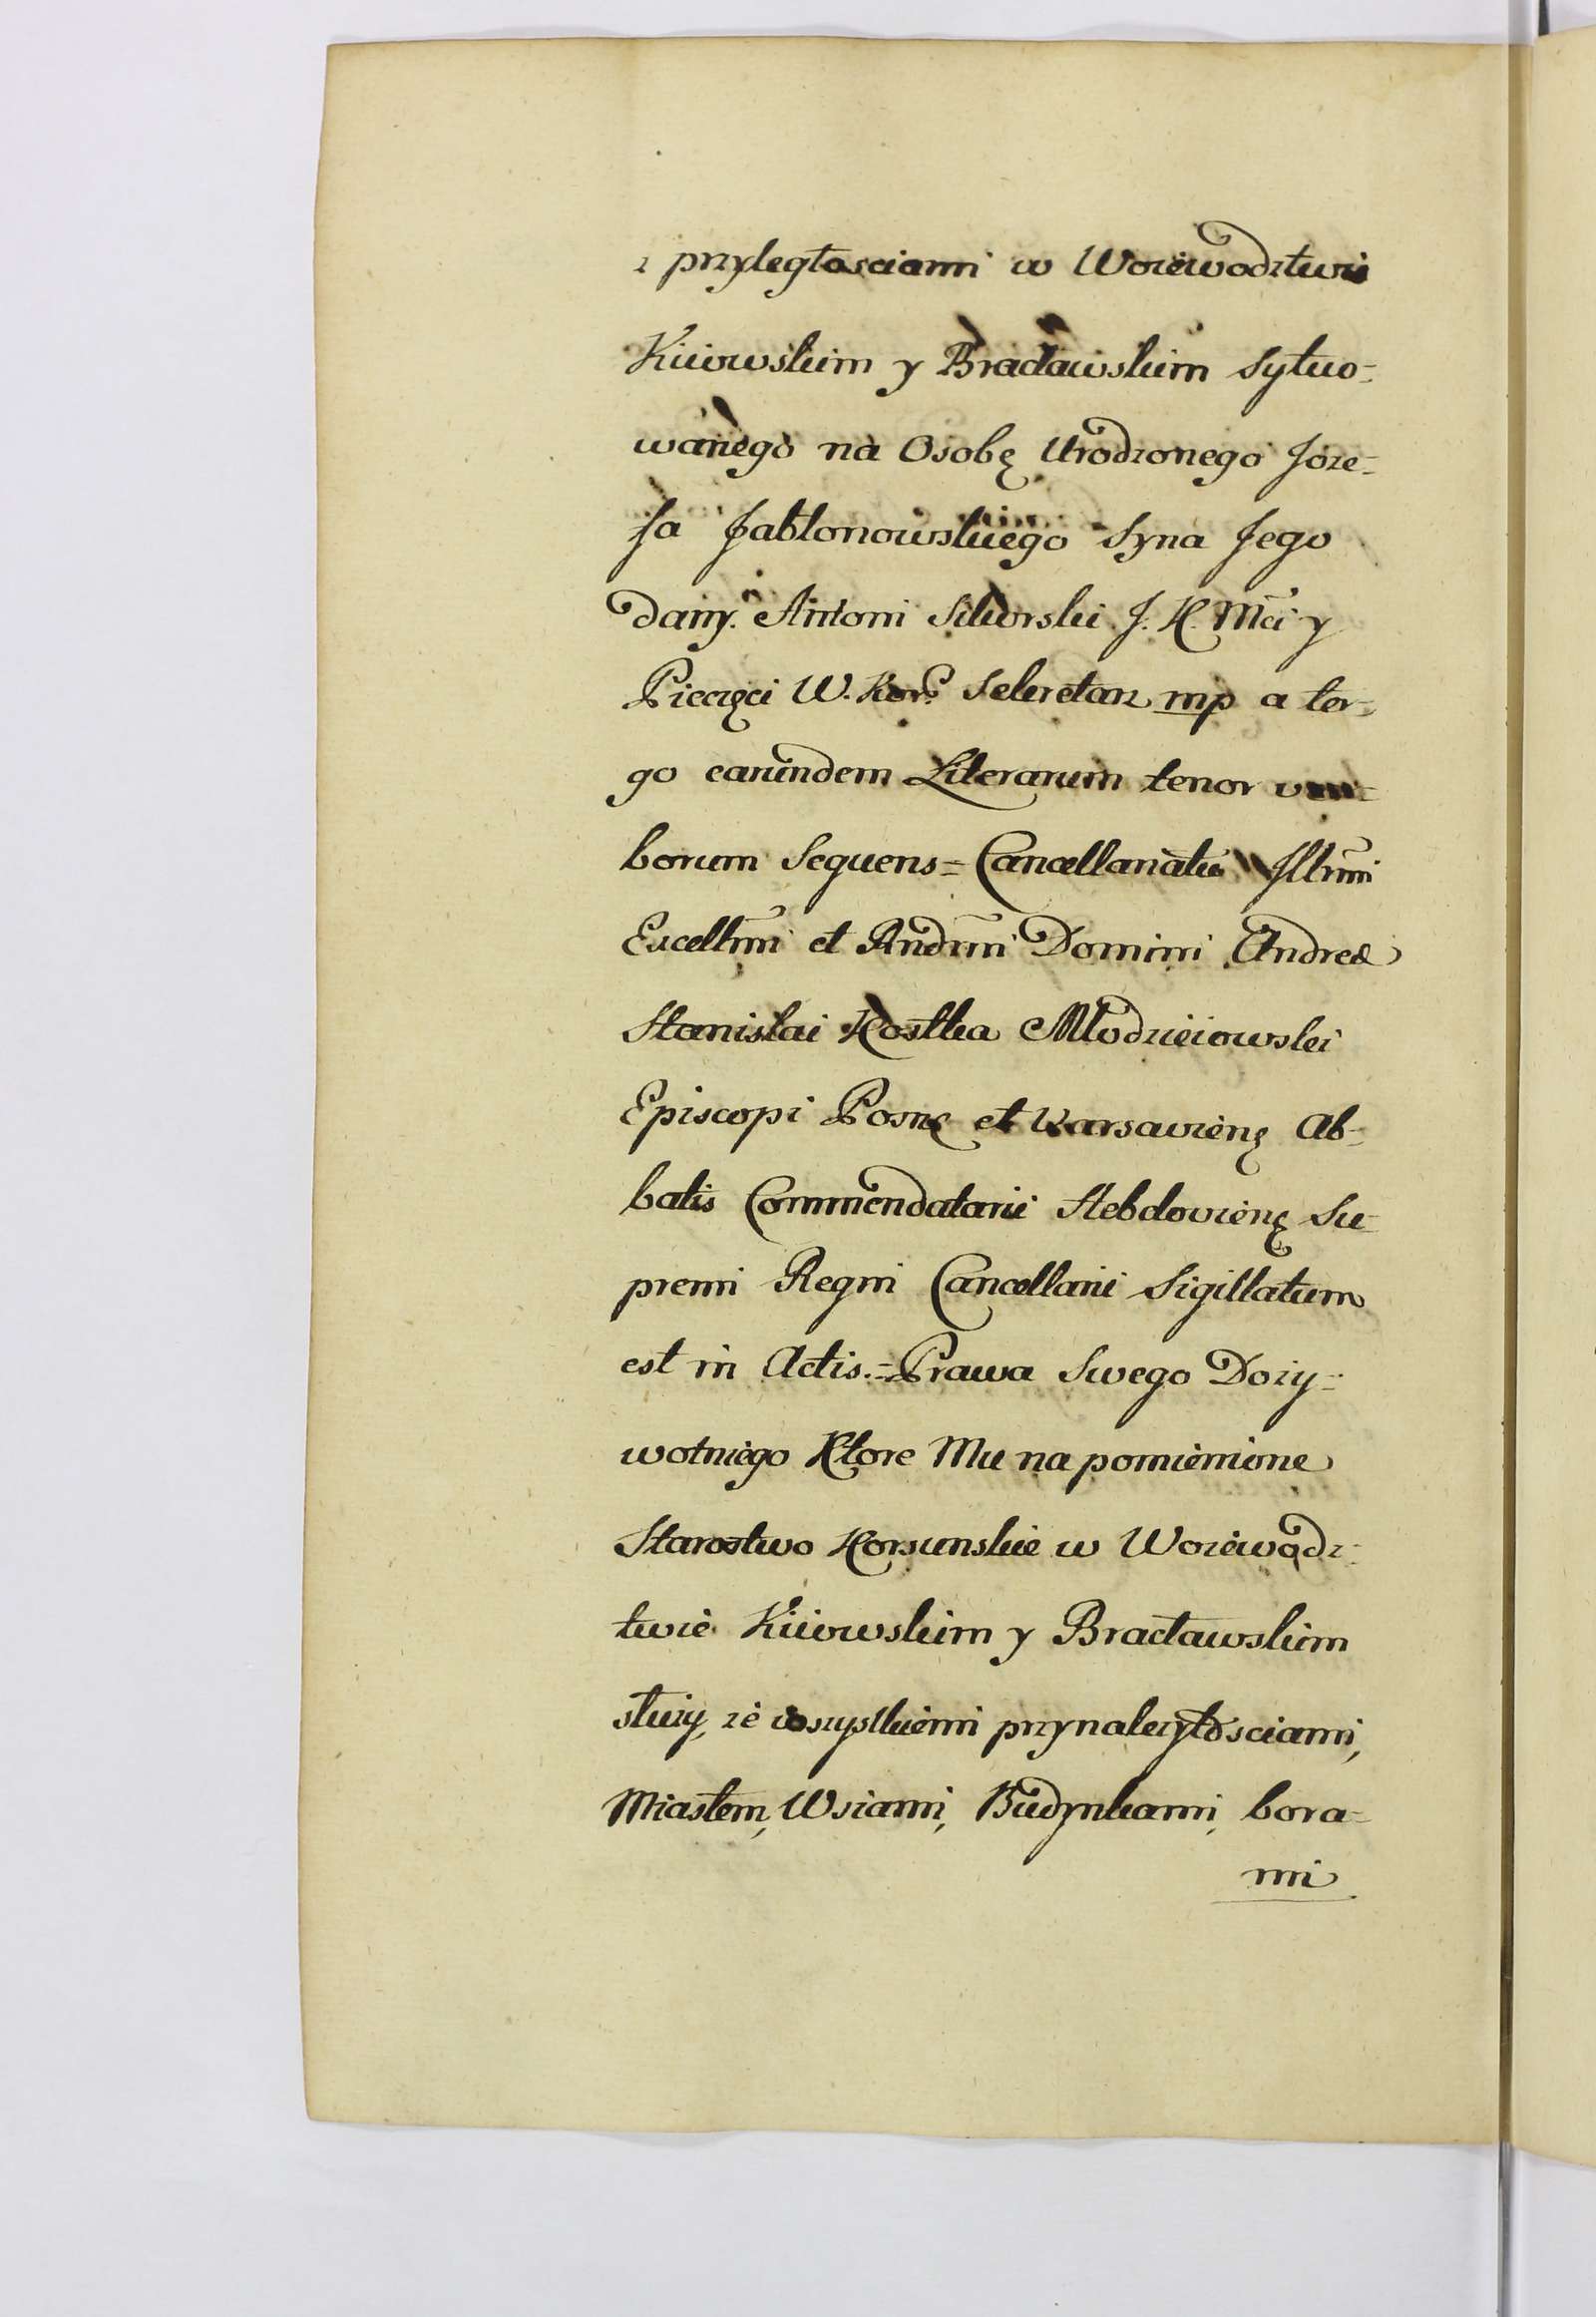 z przyległosciami w Woiewodztwie
Kiiowskim y Bracławskim sytuo-
wanego na Osobę Urodzonego Joze-
fa Jabłonowskiego Syna Jego
dany. Antoni Sikorski J. K. Mci y
Pieczęci W. Kor: Sekretarz mp a ter-
go earundem Literarum tenor ver-
borum Sequens = Cancellariatu Illrmi
Excellmi et Rndmi Domini Andreæ
Stanislai Kostka Młodzieiowski
Episcopi Posnę et Varsavienę Ab-
batis Commendatarii Hebdovienę Su-
premi Regni Cancellarii Sigillatum
est in Actis. = Prawa Swego Dozy-
wotniego Ktore Mu na pomienione
Starostwo Korsunskie w Woiewodz-
twie Kiiowskim y Bracławskim
słuzy, ze wszystkiemi przynalezytosciami,
Miastem, Wsiami, Budynkami, bora-
mi